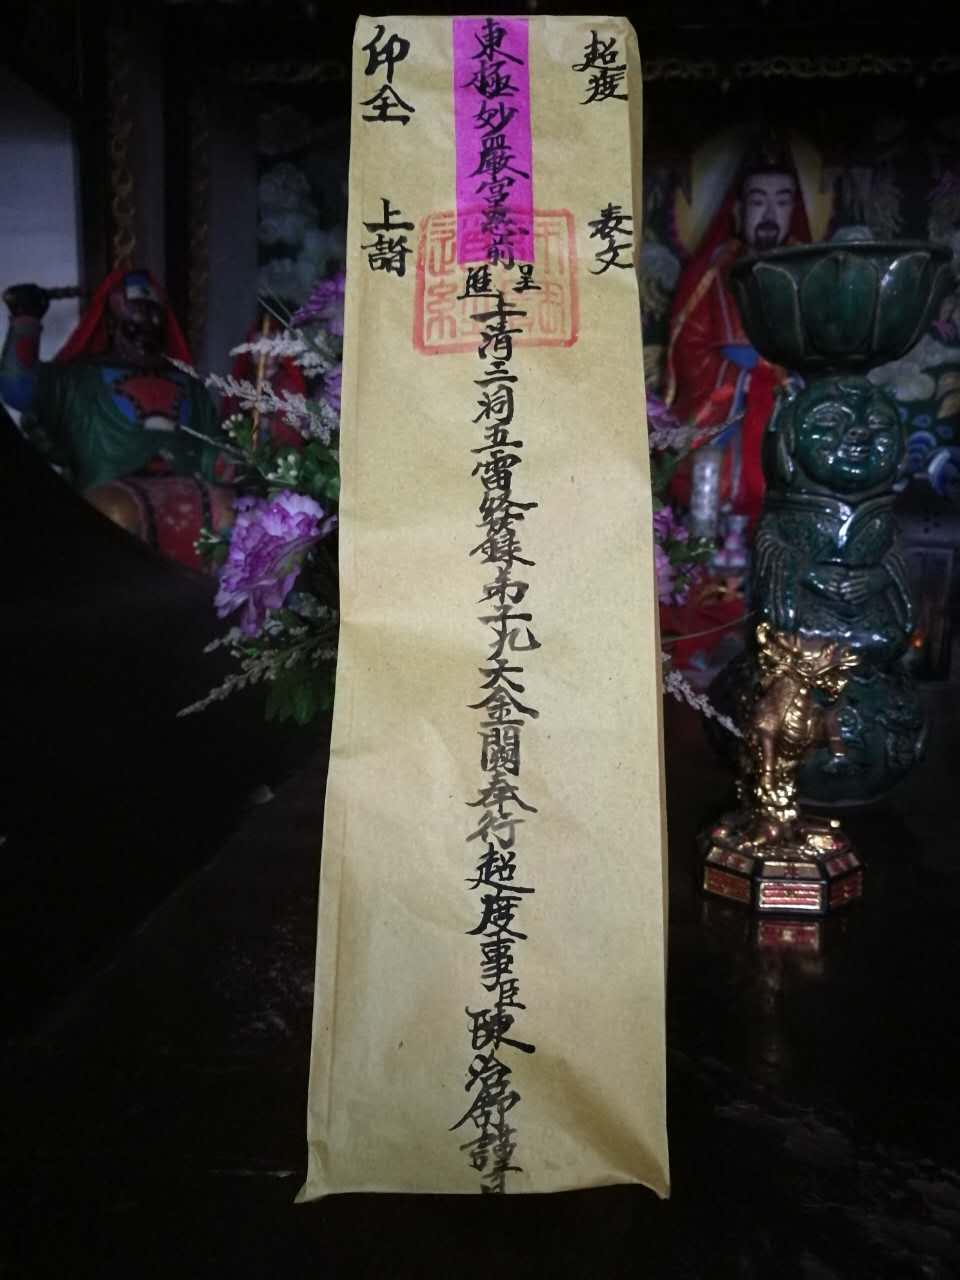 超度 表文
東極妙嚴宮前
呈進
上清三洞五雷經籙弟子九天金闕奉行超度事臣陳治謹
印全 上詣